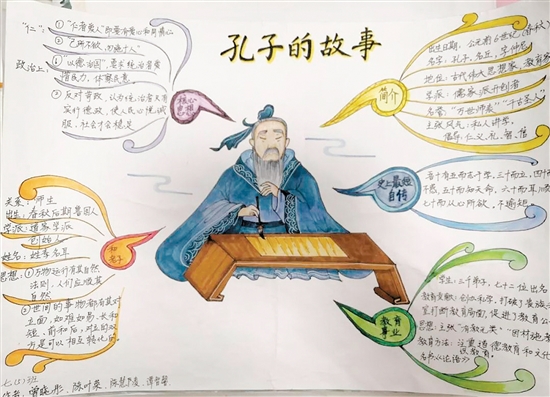 孔子的故事
"仁":
① "仁者爱人"即要有爱心和同情心
② "己所不欲,勿施于人"
政治上:
① "以德治国",要求统治者爱
惜民力,体察民意
② 反对苛政,认为统治者只有
实行德政,使人民心悦诚
服,社会才会稳定
核心
思想
简介
出生日期:公元前6世纪(春秋)
名字:孔子,名丘,字仲尼
地位:古代伟大思想家,教育家
学派:儒家派开创者
名誉:"万世师表""千古圣人"
主张风光:私人讲学,
倡导:仁、义、礼、智、信
史上最短
自传
吾十有五而志于学,三十而立,四十
不惑,五十而知天命,六十而耳顺
七十而从心所欲,不逾矩
关系:师生
出生:春秋后期楚国人
学派:道家学派
创始人
姓名:姓李名耳
思想:① 万物运行有其自然
法则,人们应顺其
自然
② 世间的事物都有其对
立面,如难如易、长和
短、前和后;对立的双
方是可以相互转化的
和
老子
教育
事业
学生:三千弟子,七十二位出名
教育贡献:创办私学,打破了贵族
垄断教育局面,促进了教育
思想:主张"有教无类""因材施教
教育方法:注重道德教育和文化
教育
名作《论语》
七(5)班
作者:曾晓彤、陈叶荣、